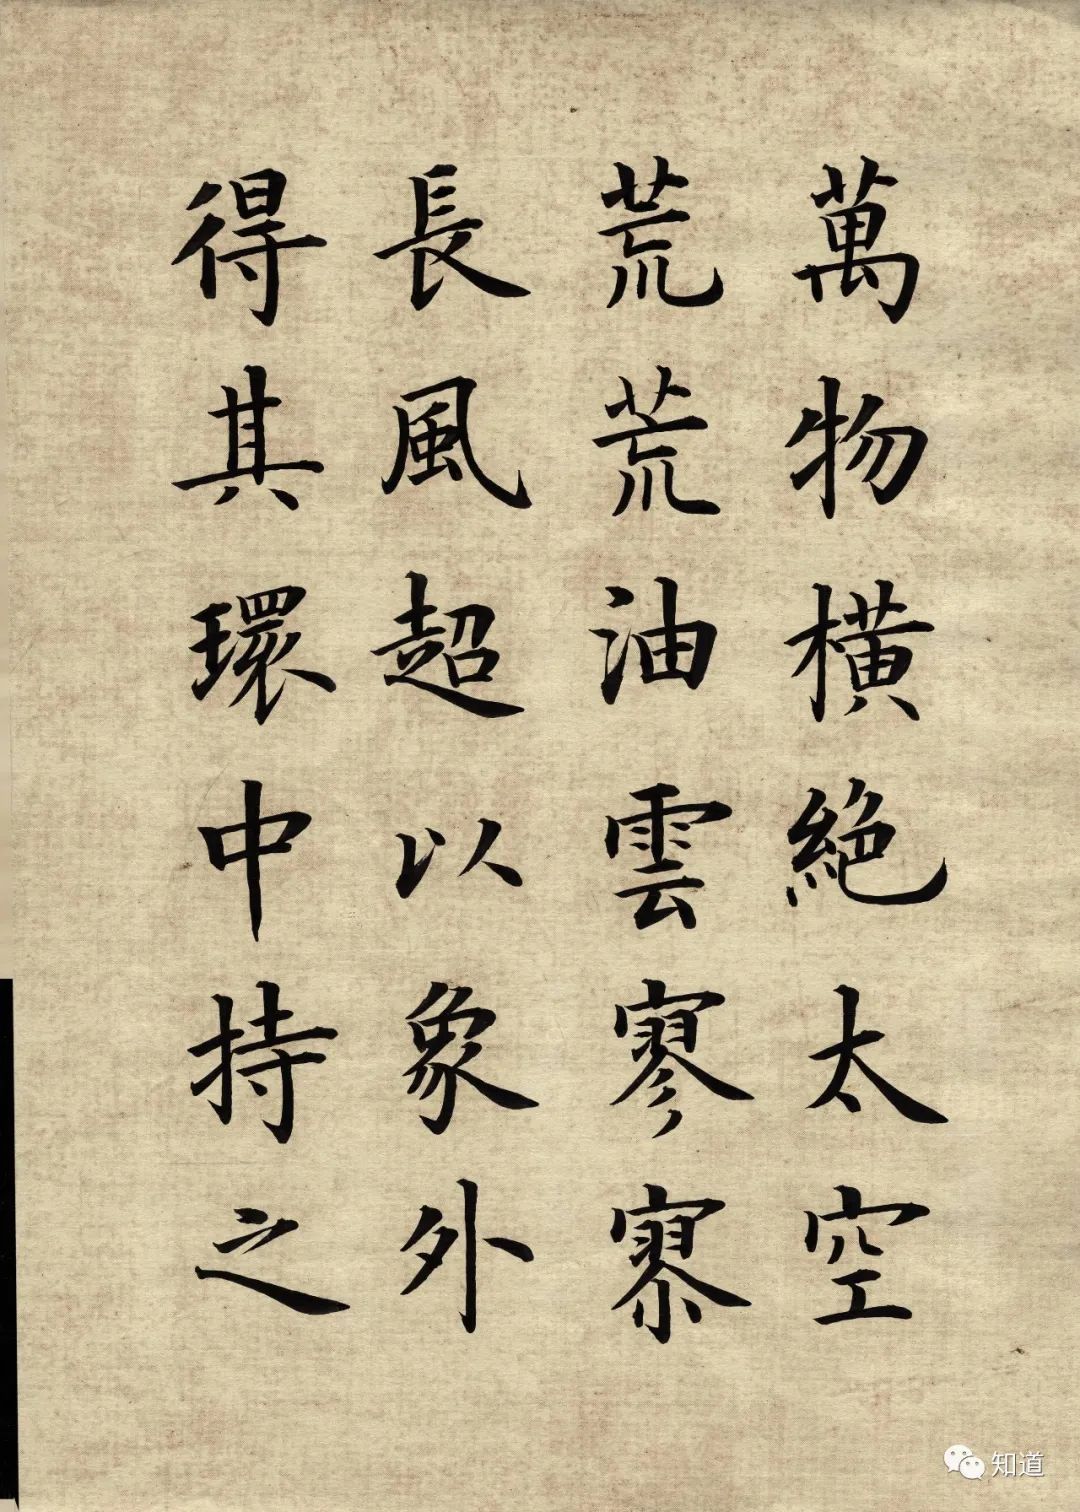 萬物橫絕太空
荒荒油雲寥寥
長風超以象外
得其環中持之
知道